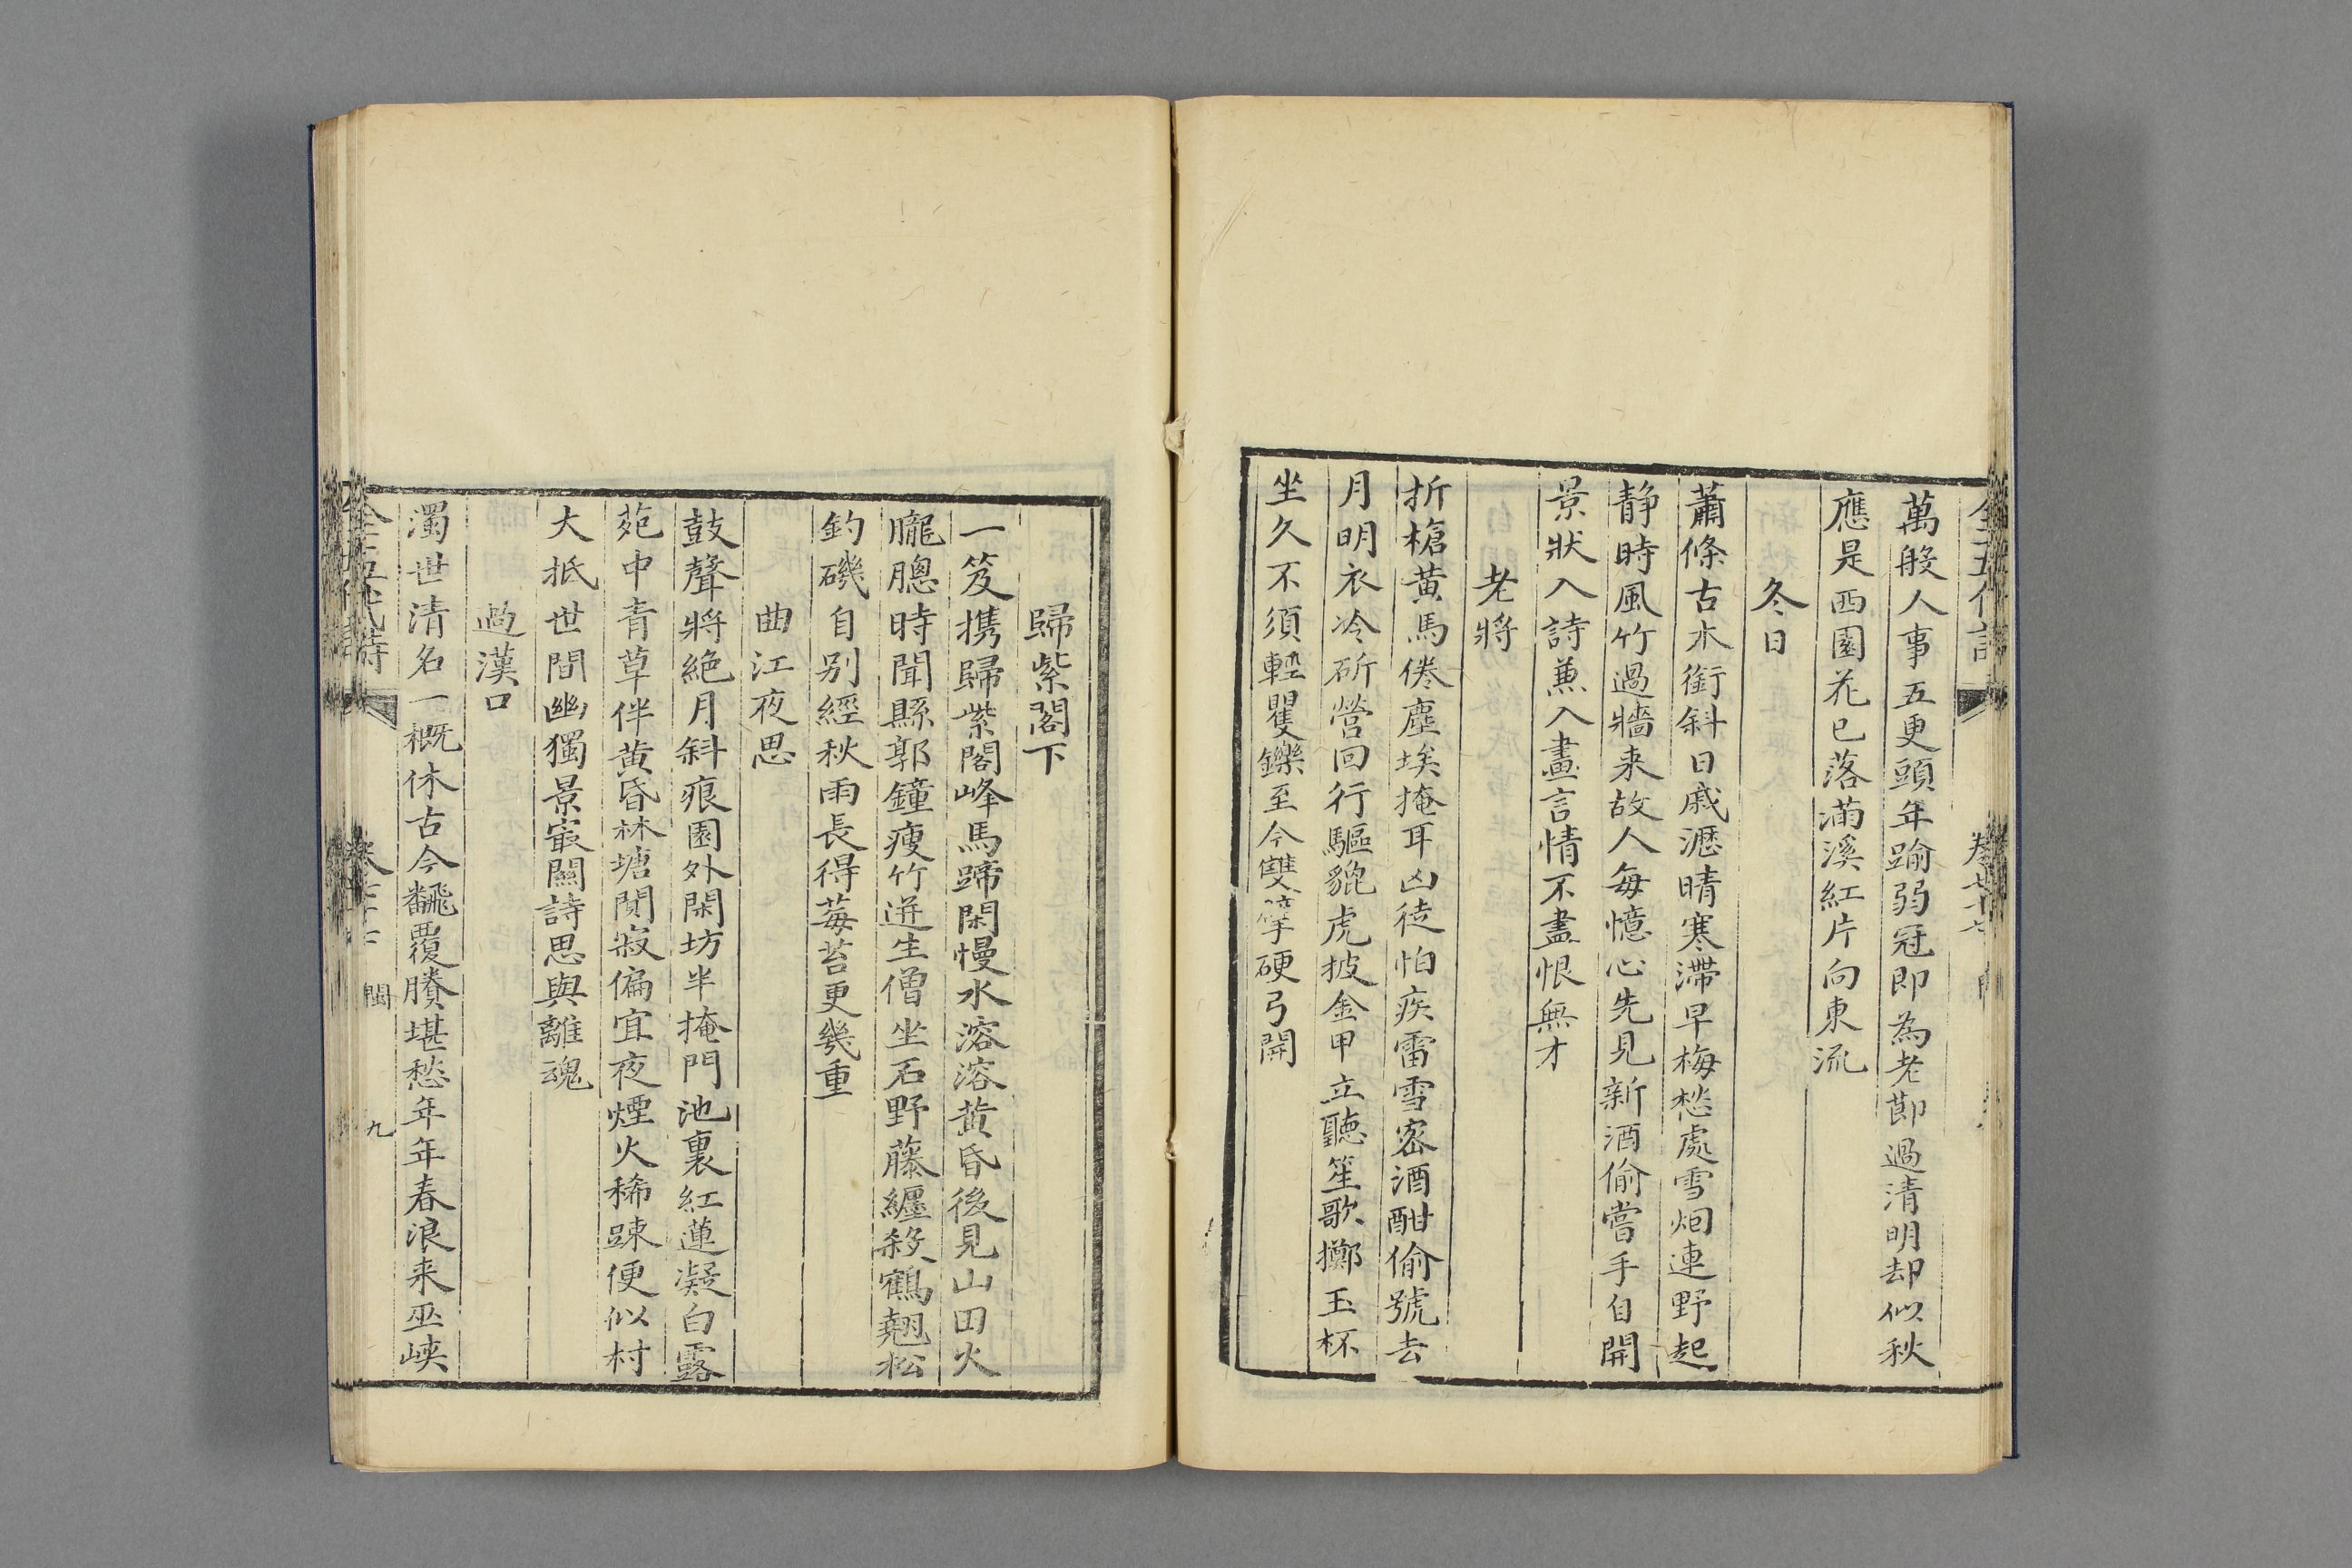 萬般人事五更頭年踰弱冠即為老莭過清明却似秋
應是西園花已落滿溪紅片向東流
冬日
蕭條古木銜斜日戚瀝晴寒滯早梅愁處雪烟連野起
静時風竹過牆来故人每憶心先見新酒偷嘗手自開
景狀入詩兼入畫言情不盡恨無才
老將
折槍黃馬倦塵埃掩耳凶徒怕疾雷雪密酒酣偷號去
月明衣冷斫營回行驅貔虎披金甲立聽笙歌擲玉杯
坐久不須輕矍鑠至今雙擘硬弓開
歸紫閣下
一笈携歸紫閣峰馬蹄閑慢水溶溶黄昏後見山田火
朧朦時聞縣郭鐘瘦竹迸生僧坐石野藤纏殺鶴翹松
釣磯自别經秋雨長得莓苔更幾重
曲江夜思
鼓聲將絶月斜痕園外閑坊半掩門池裏紅蓮凝白露
苑中青草伴黄昏林塘閴寂偏宜夜煙火稀踈便似村
大抵世間幽獨景㝡關詩思與離魂
過漢口
濁世清名一概休古今飜覆賸堪愁年年春浪来巫峡
全五代詩
閩
九